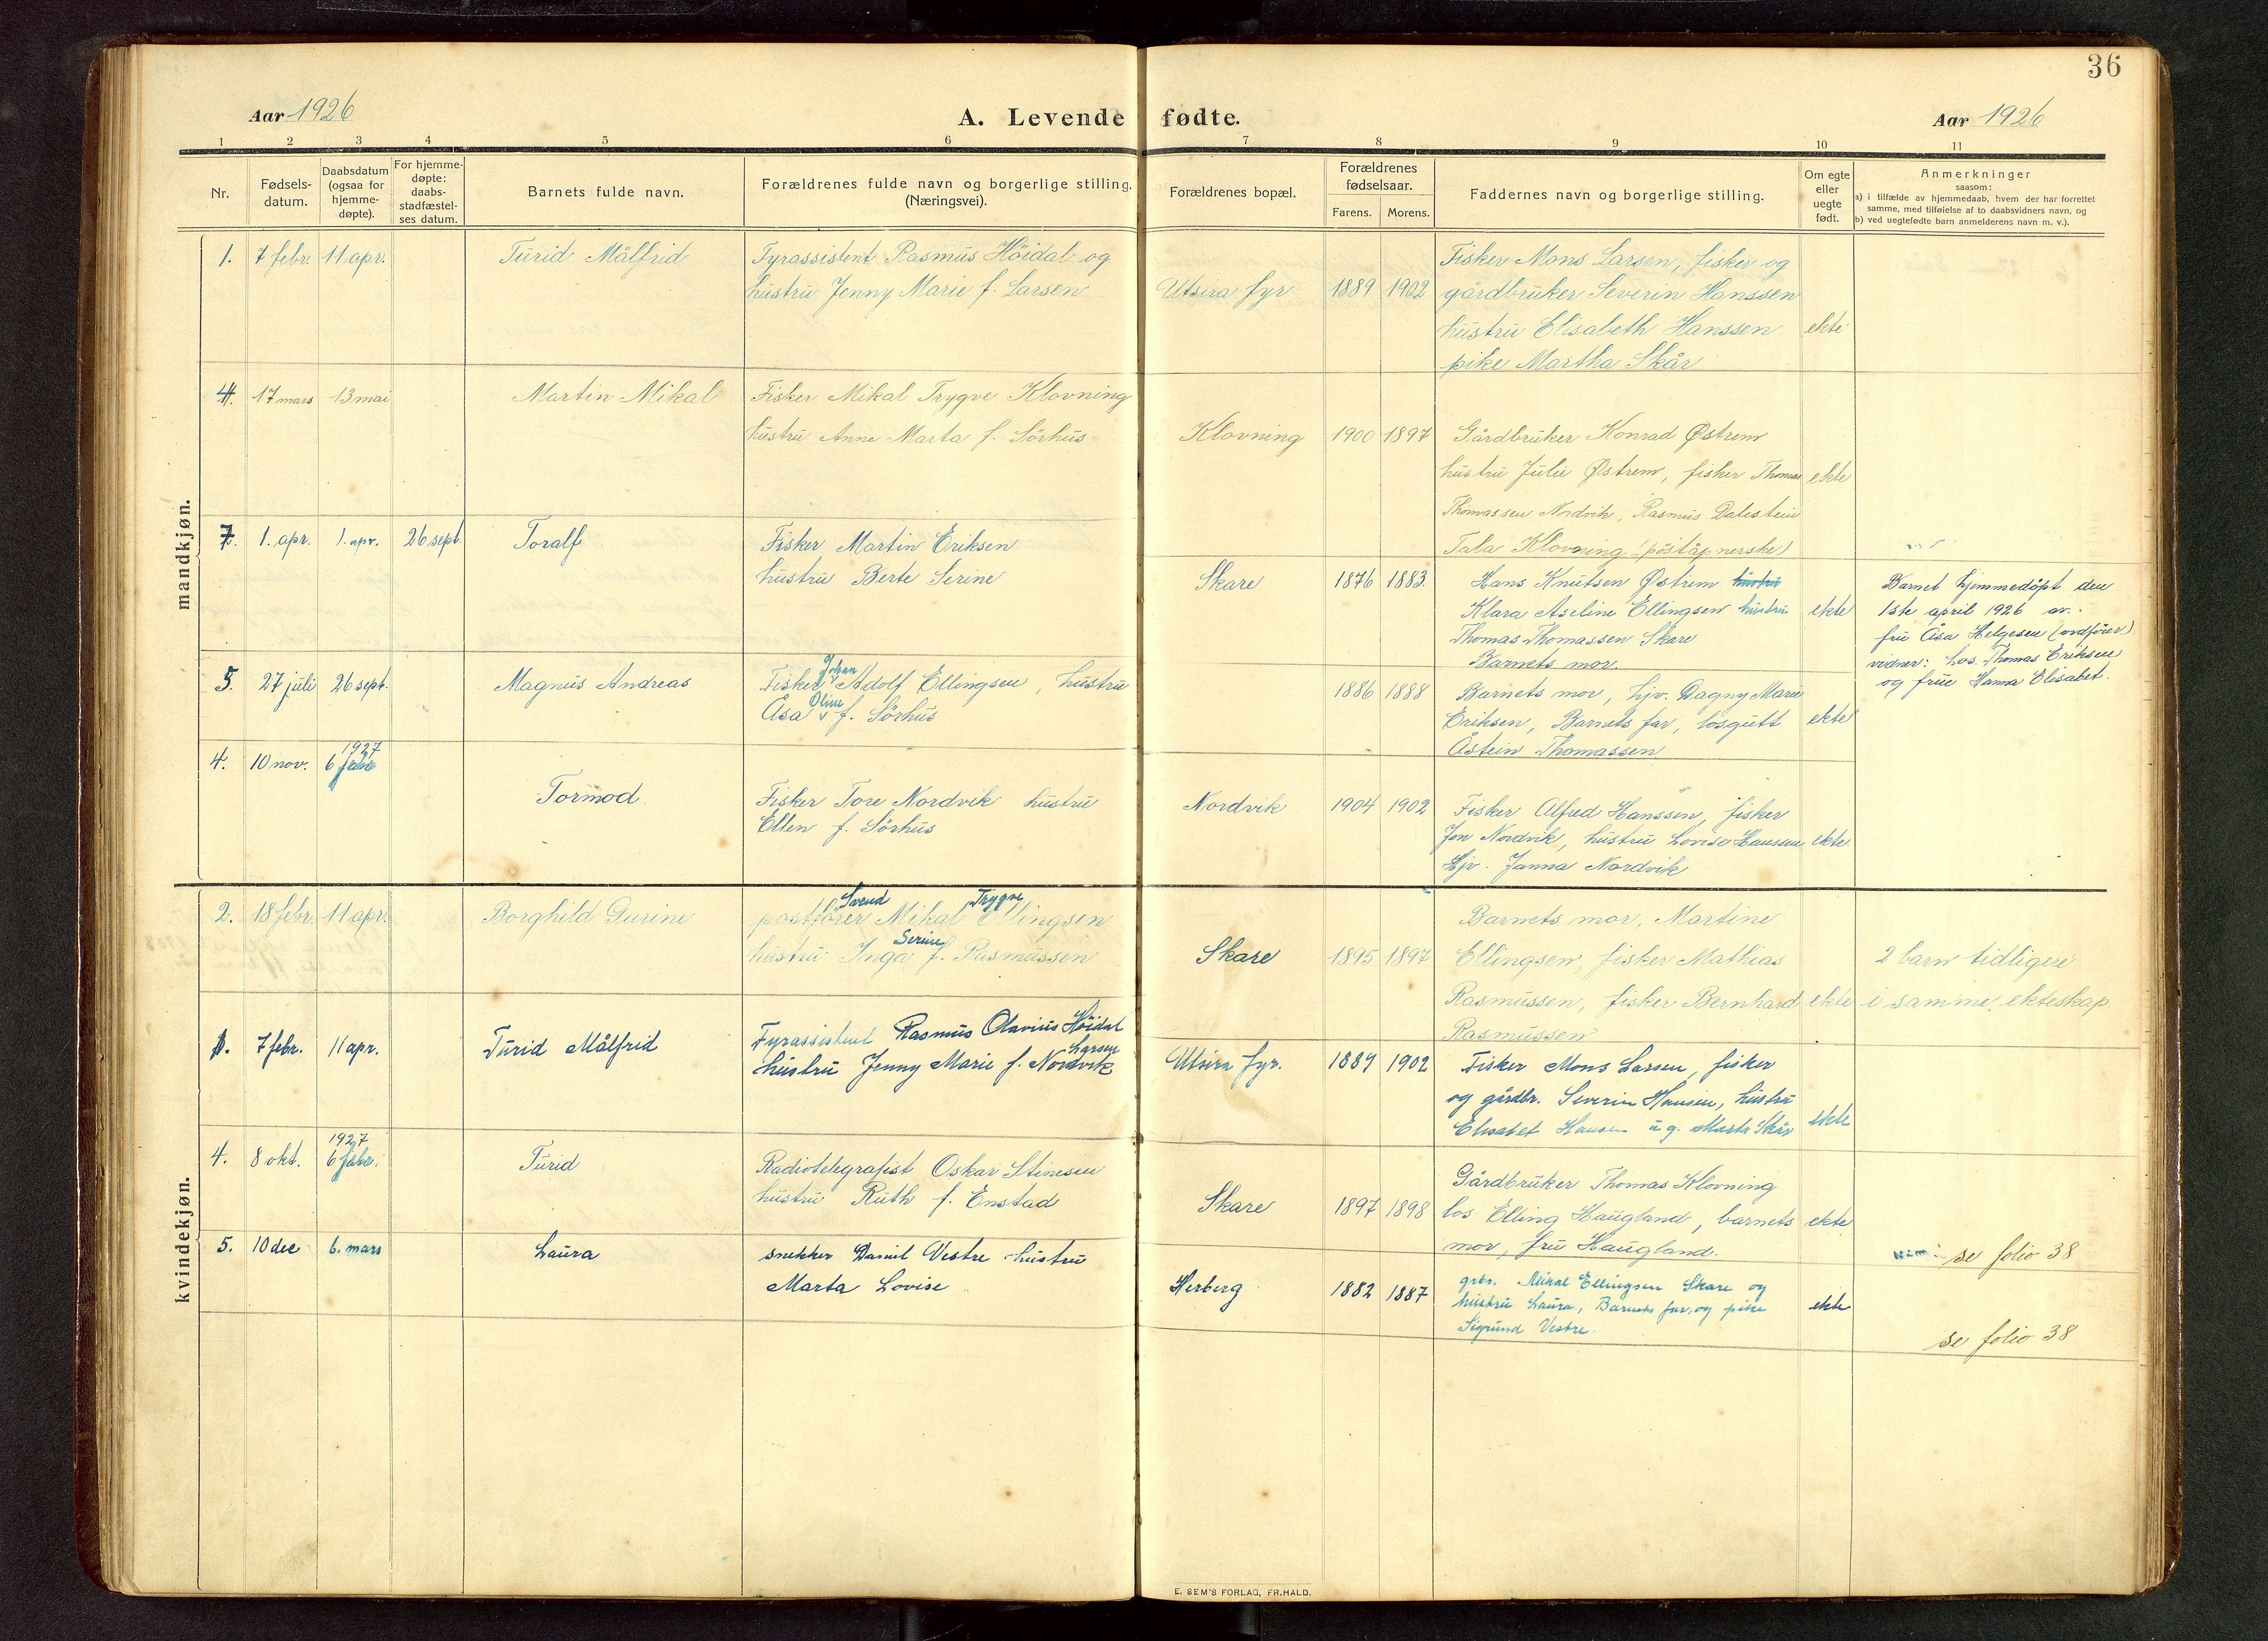 36
Aar 1926
A. Levende fødte.
Aar 1926
1 2 3 4 5 6 7 8 9 10 11
Nr.
Fødsels-
datum.
Daabsdatum
(ogsaa for
hjemme-
døpte).
For hjemme-
døpte:
daabs-
stadfæstel-
ses datum.
Barnets fulde navn.
Forældrenes fulde navn og borgerlige stilling.
(Næringsvei).
Forældrenes bopæl.
Forældrenes
fødselsaar.
Farens. Morens.
Faddernes navn og borgerlige stilling.
Om egte
eller
uegte
født.
Anmerkninger
saasom:
a) i tilfælde av hjemmedaab, hvem der har forrettet
samme, med tilføielse af to daabsvidners navn, og
b) ved uegtefødte barn anmelderens navn m. v.).
mandkjøn.
1. 7 febr. 11 apr. Turid Målfrid
Fyrassistent Rasmus Höidal og
hustru Jenny Marie f. Larsen
Utsira fyr 1889 1902
Fisker Mons Larsen, fisker og
gårdbruker Severin Hanssen
hustru Elisabeth Hanssen
pike Martha Skår
ekte
4. 17 mars 13 mai Martin Mikal
Fisker Mikal Trygve Klovning
hustru Anne Marta f. Sörhus
Klovning 1900 1897
Gårdbruker Konrad Østrem
hustru Julie Østrem, fisker Thomas
Thomassen Nordvik, Rasmus Dalestein
Tala Klovning (poståpnerske)
ekte
7. 1. apr. 1. apr. 26 sept. Toralf
Fisker Martin Eriksen
hustru Berte Serine
Skare 1876 1883
Hans Knutsen Østrem hustru
Klara Aseline Ellingsen hustru
Thomas Thomassen Skare
Barnets mor.
ekte
Barnet hjemmedöpt den
1ste april 1926 av
fru Åsa Helgesen (ordförer)
vidner: los. Thomas Eriksen
og frue Hanna Elisabet.
5. 27 juli 26 sept. Magnus Andreas
Johan
Fisker Adolf Ellingsen, hustru
Oline
Åsa f. Sörhus
1886 1888
Barnets mor, hjv. Dagny Marie
Eriksen, Barnets far, losgutt
Åstein Thomassen
ekte
1927
4. 10 nov. 6 febr Tormod.
Fisker Tore Nordvik hustru
Ellen f. Sörhus
Nordvik 1904 1902
Fisker Alfred Hanssen, fisker
Jon Nordvik, hustru Lovise Hanssen
Hjv. Janna Nordvik
ekte.
kvindekjøn.
2. 18 febr. 11 apr. Borghild Gurine
Svend Trygve
postförer Mikal Ellingsen
Serine
hustru Inga f. Rasmussen
Skare 1895 1897
Barnets mor, Martine
Ellingsen, fisker Mathias
Rasmussen, fisker Bernhard
Rasmussen
ekte
2 barn tidligere
i samme ekteskap
1. 7 febr. 11 apr. Turid Målfrid
Fyrassistent Rasmus Olavius Höidal
Larsen
hustru Jenny Marie f. Nordvik
Utsira fyr. 1889 1902
Fisker Mons Larsen, fisker
og gårdbr. Severin Hansen, hustru
Elisabet Hansen u g. Marta Skår
ekte
1927
4. 8 okt. 6 febr. Turid
Radiotelegrafist Oskar Stinesen
hustru Ruth f. Enstad
Skare 1897 1898
Gårdbruker Thomas Klovning
los Elling Haugland, barnets
mor, fru Haugland.
ekte
se folio 38
5. 10 dec 6. mars Laura
snekker Daniel Vestre hustru
Marta Lovise
Herberg 1882 1887
grbr. Mikal Ellingsen Skare og
hustru Laura, Barnets far, og pike
Sigrund Vestre.
ekte
se folio 38
E. SEM'S FORLAG, FR.HALD.